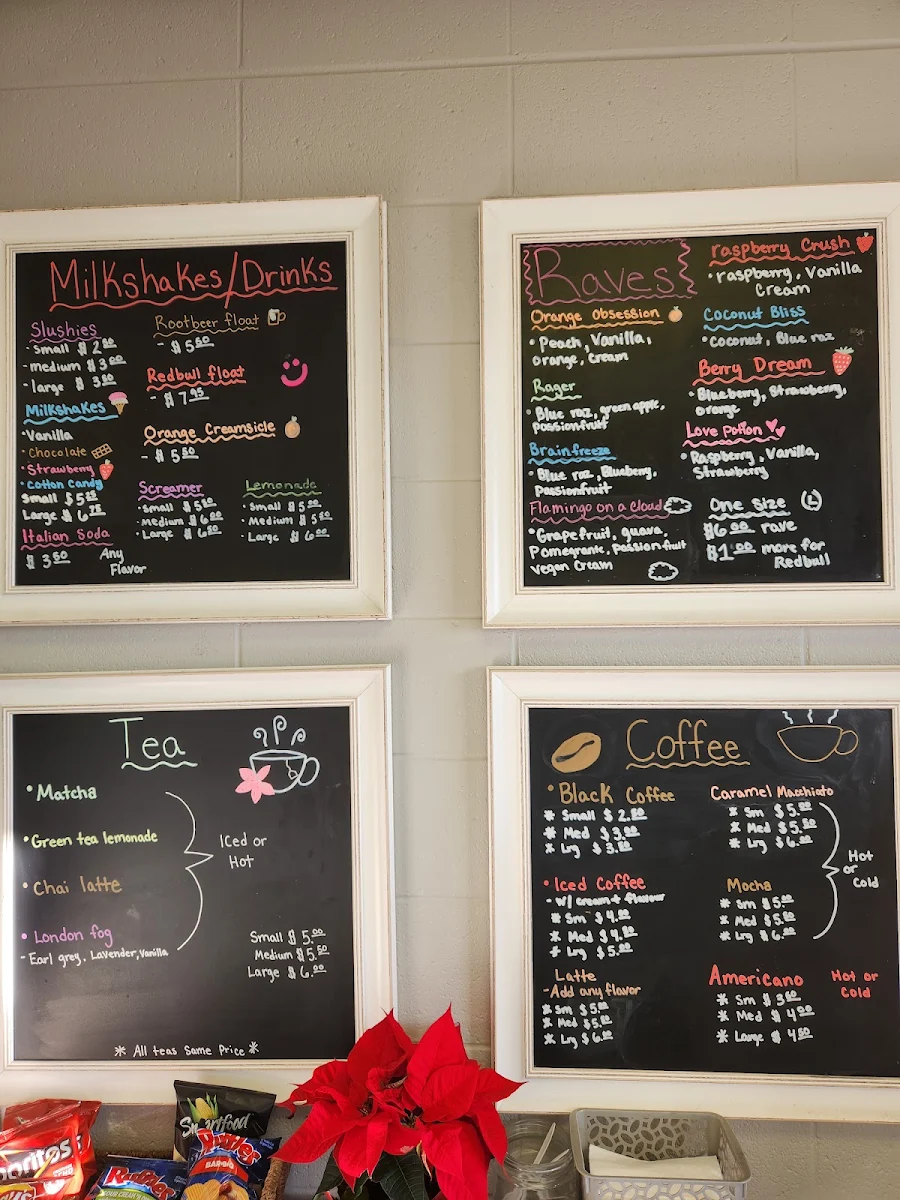 Milkshakes/Drinks
Slushies
- Small $ 2.50
- medium $ 3.00
- large $ 3.50
Milkshakes
· Vanilla
· Chocolate
· Strawberry
· Cotton Candy
Small $ 5.25
Large $ 6.75
Italian Soda
$ 3.50 Any
Flavor
Rootbeer float
- $ 5.50
Redbull float
- $ 7.95
Orange Creamsicle
- $ 5.50
Screamer
· Small $ 5.50
· Medium $ 6.00
· Large $ 6.50
Lemonade
· Small $ 5.00
· Medium $ 5.50
· Large $ 6.00
Raves
Orange Obsession
· Peach, Vanilla,
orange, Cream
Rager
· Blue raz, green apple,
Passionfruit
Brainfreeze
· Blue raz, Blueberry,
Passionfruit
Flamingo on a Cloud
· Grapefruit, guava,
Pomegrante, Passion fruit
vegan Cream
raspberry Crush
· raspberry, Vanilla
Cream
Coconut Bliss
· Coconut, Blue raz
Berry Dream
· Blueberry, Strawberry,
orange
Love Potion
· Raspberry, Vanilla,
Strawberry
One Size
$6.00 rave
$1.00 more for
Redbull
Tea
· Matcha
· Green tea lemonade
· Chai latte
· London fog
- Earl grey, Lavender, Vanilla
Iced or
Hot
Small $ 5.00
Medium $ 5.50
Large $ 6.00
* All teas Same Price *
Coffee
· Black Coffee
* Small $ 2.50
* Med $ 3.00
* Lrg $ 3.50
· Iced Coffee
- w/ cream + flavour
* Sm $ 4.00
* Med $ 4.50
* Lrg $ 5.00
Latte
- Add any flavor
* Sm $ 5.00
* Med $ 5.50
* Lrg $ 6.00
Caramel Macchiato
* Sm $ 5.00
* Med $ 5.50
* Lrg $ 6.00
Mocha
* Sm $ 5.00
* Med $ 5.50
* Lrg $ 6.00
Hot
or
Cold
Americano
* Sm $ 3.50
* Med $ 4.00
* Large $ 4.50
Hot or
Cold
Doritos
Smartfood
Ruffles
Ruffles